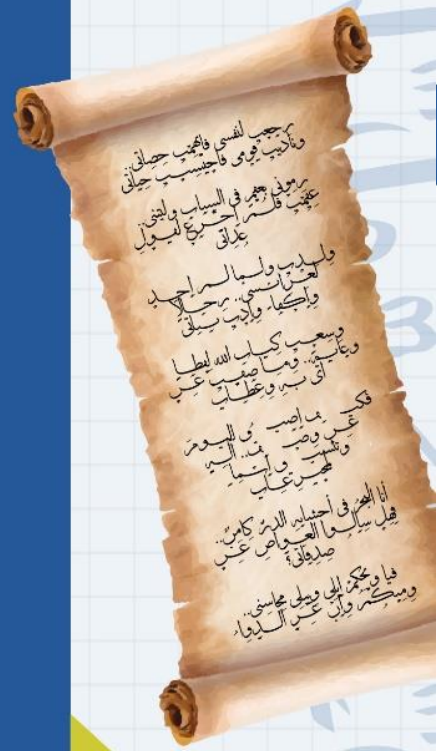 رجعت لنفسي فاتهمت حصاتي
وناديت قومي فاحتسبت حياتي
رموني بعقم في الشباب وليتني
عقمت فلم أجزع لقول
عداتي
ولدت ولما لم أجد
لعرائسي.. رجالا
وأكفاء وأدت بناتي
وسعت كتاب الله لفظا
وغاية.. وما ضقت عن
آي به وعظات
اليوم
عن
أنا البحر في أحشائه الدر كامن..
فهل سألوا الغواص عن
صدفاتي؟
فيا ويحكم أبلى وتبلى محاسني..
ومنكم وإن عز الدواء